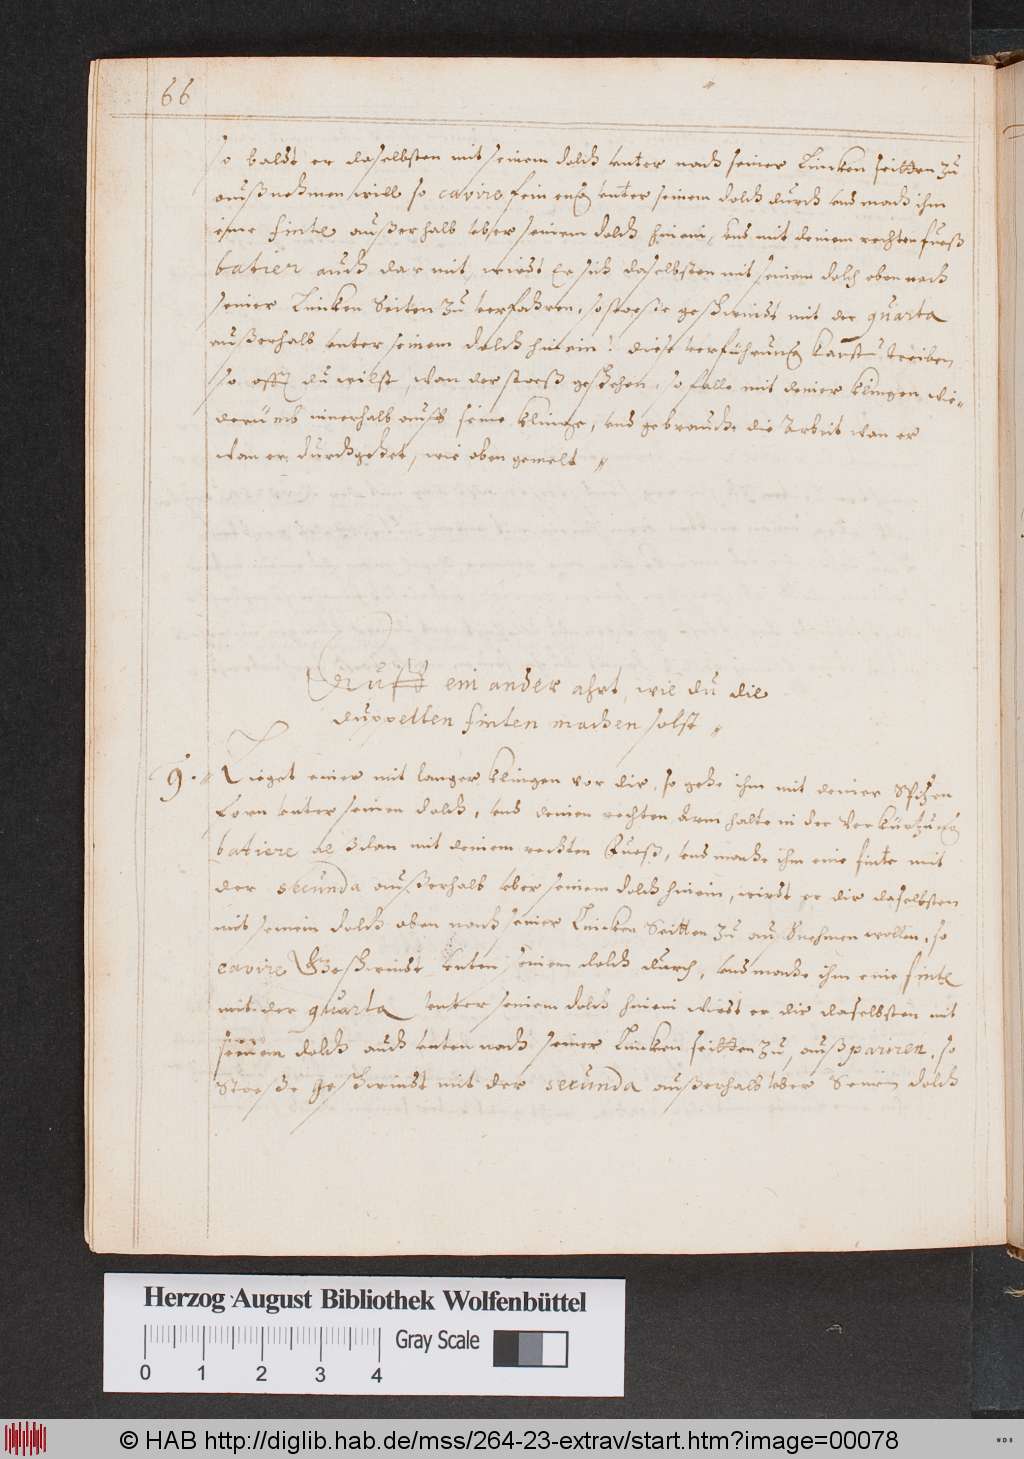 66
so baldt er daselbsten mit seinem dolch unter nach seiner Lincken seitten zu
außnehmen will so cavire fein eng unter seinem dolch durch und mach ihm
eine finte außerhalb uber seinem dolch hinein, und mit deinem rechten fueß
batier auch dar mit, wirdt er sich daselbsten mit seinem dolch oben nach
seiner Lincken Seiten zu verfahren, so stoeße geschwindt mit der quarta
außerhalb unter seinem dolch hinein! diese verführung kanstu treiben
so offt du wilst, wan der stoeß geschehen, so falle mit deiner klingen wie=
derümb innerhalb auff seine klinge, und gebrauche die Arbeit wan er
wan er durchgehet, wie oben gemelt //
Auff ein ander ahrt, wie du die
duppelten finten machen solst //
9. // Lieget einer mit langer klingen vor dir, so gehe ihm mit deiner Spitzen
forn unter seinen dolch, und deinen rechten Arm halte in der Verkürtzung
batiere alßdan mit deinem rechten Fueß, und mache ihm eine finte mit
der secunda außerhalb uber seinem dolch hinein, wirdt er dir daselbsten
mit seinem dolch oben nach seiner Lincken Seitten zu außnehmen wollen, so
cavire Geschwindt unten seinem dolch durch, und mache ihm eine finte
mit der quarta unter seinem dolch hinein wirdt er dir daselbsten mit
seinem dolch auch unten nach seiner Lincken seitten zu, außpariren, so
Stoeße geschwindt mit der secunda außerhalb uber Seinen dolch
Herzog August Bibliothek Wolfenbüttel
Gray Scale
0 1 2 3 4
© HAB http://diglib.hab.de/mss/264-23-extrav/start.htm?image=00078